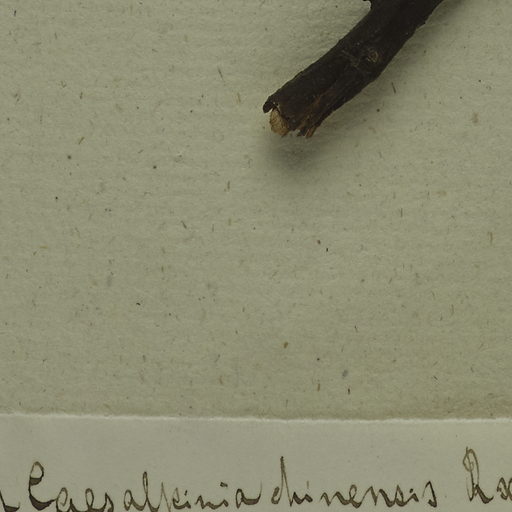 Caesalpinia chinensis Rx